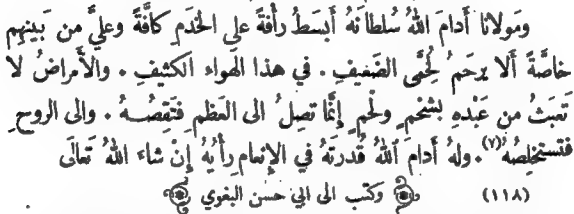 ومَولانا أدامَ اللهُ سُلطانَهُ أَبسَطُ رأفةً على الخَدَمِ كافَّةً وعليَّ من بَينِهِم
خاصَّةً ألا يرحَمُ لُحْمَى الضَّعيفِ . في هذا الهواء الكثيفِ . والأَمراضُ لا
تَعبَثُ من عَبْدِهِ بشحْمٍ ولحمٍ إِنَّما تصِلُ الى العَظْمِ فتَنقِصُهُ . والى الروحِ
فتستخلِصُهُ (٧) . ولهُ أَدامَ اللهُ قُدرتَهُ في الإِنعامِ رأْيُهُ إِنْ شاءَ اللهُ تَعالَى
(١١٨) وكتب الى ابي حسن البغوي